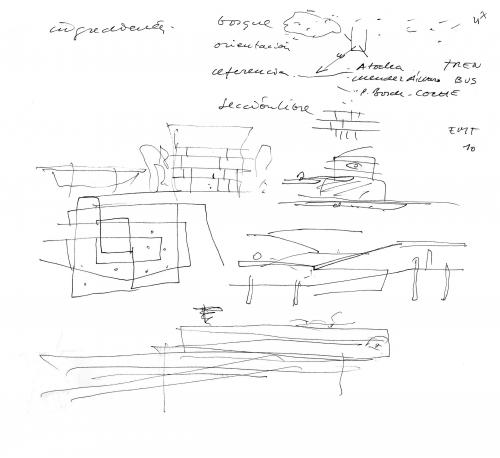 ingredientes.
bosque
orientación
referencia
Atocha TREN
Mendez Alvaro BUS
P. Bosch - COCHE
sección libre
EMT
10